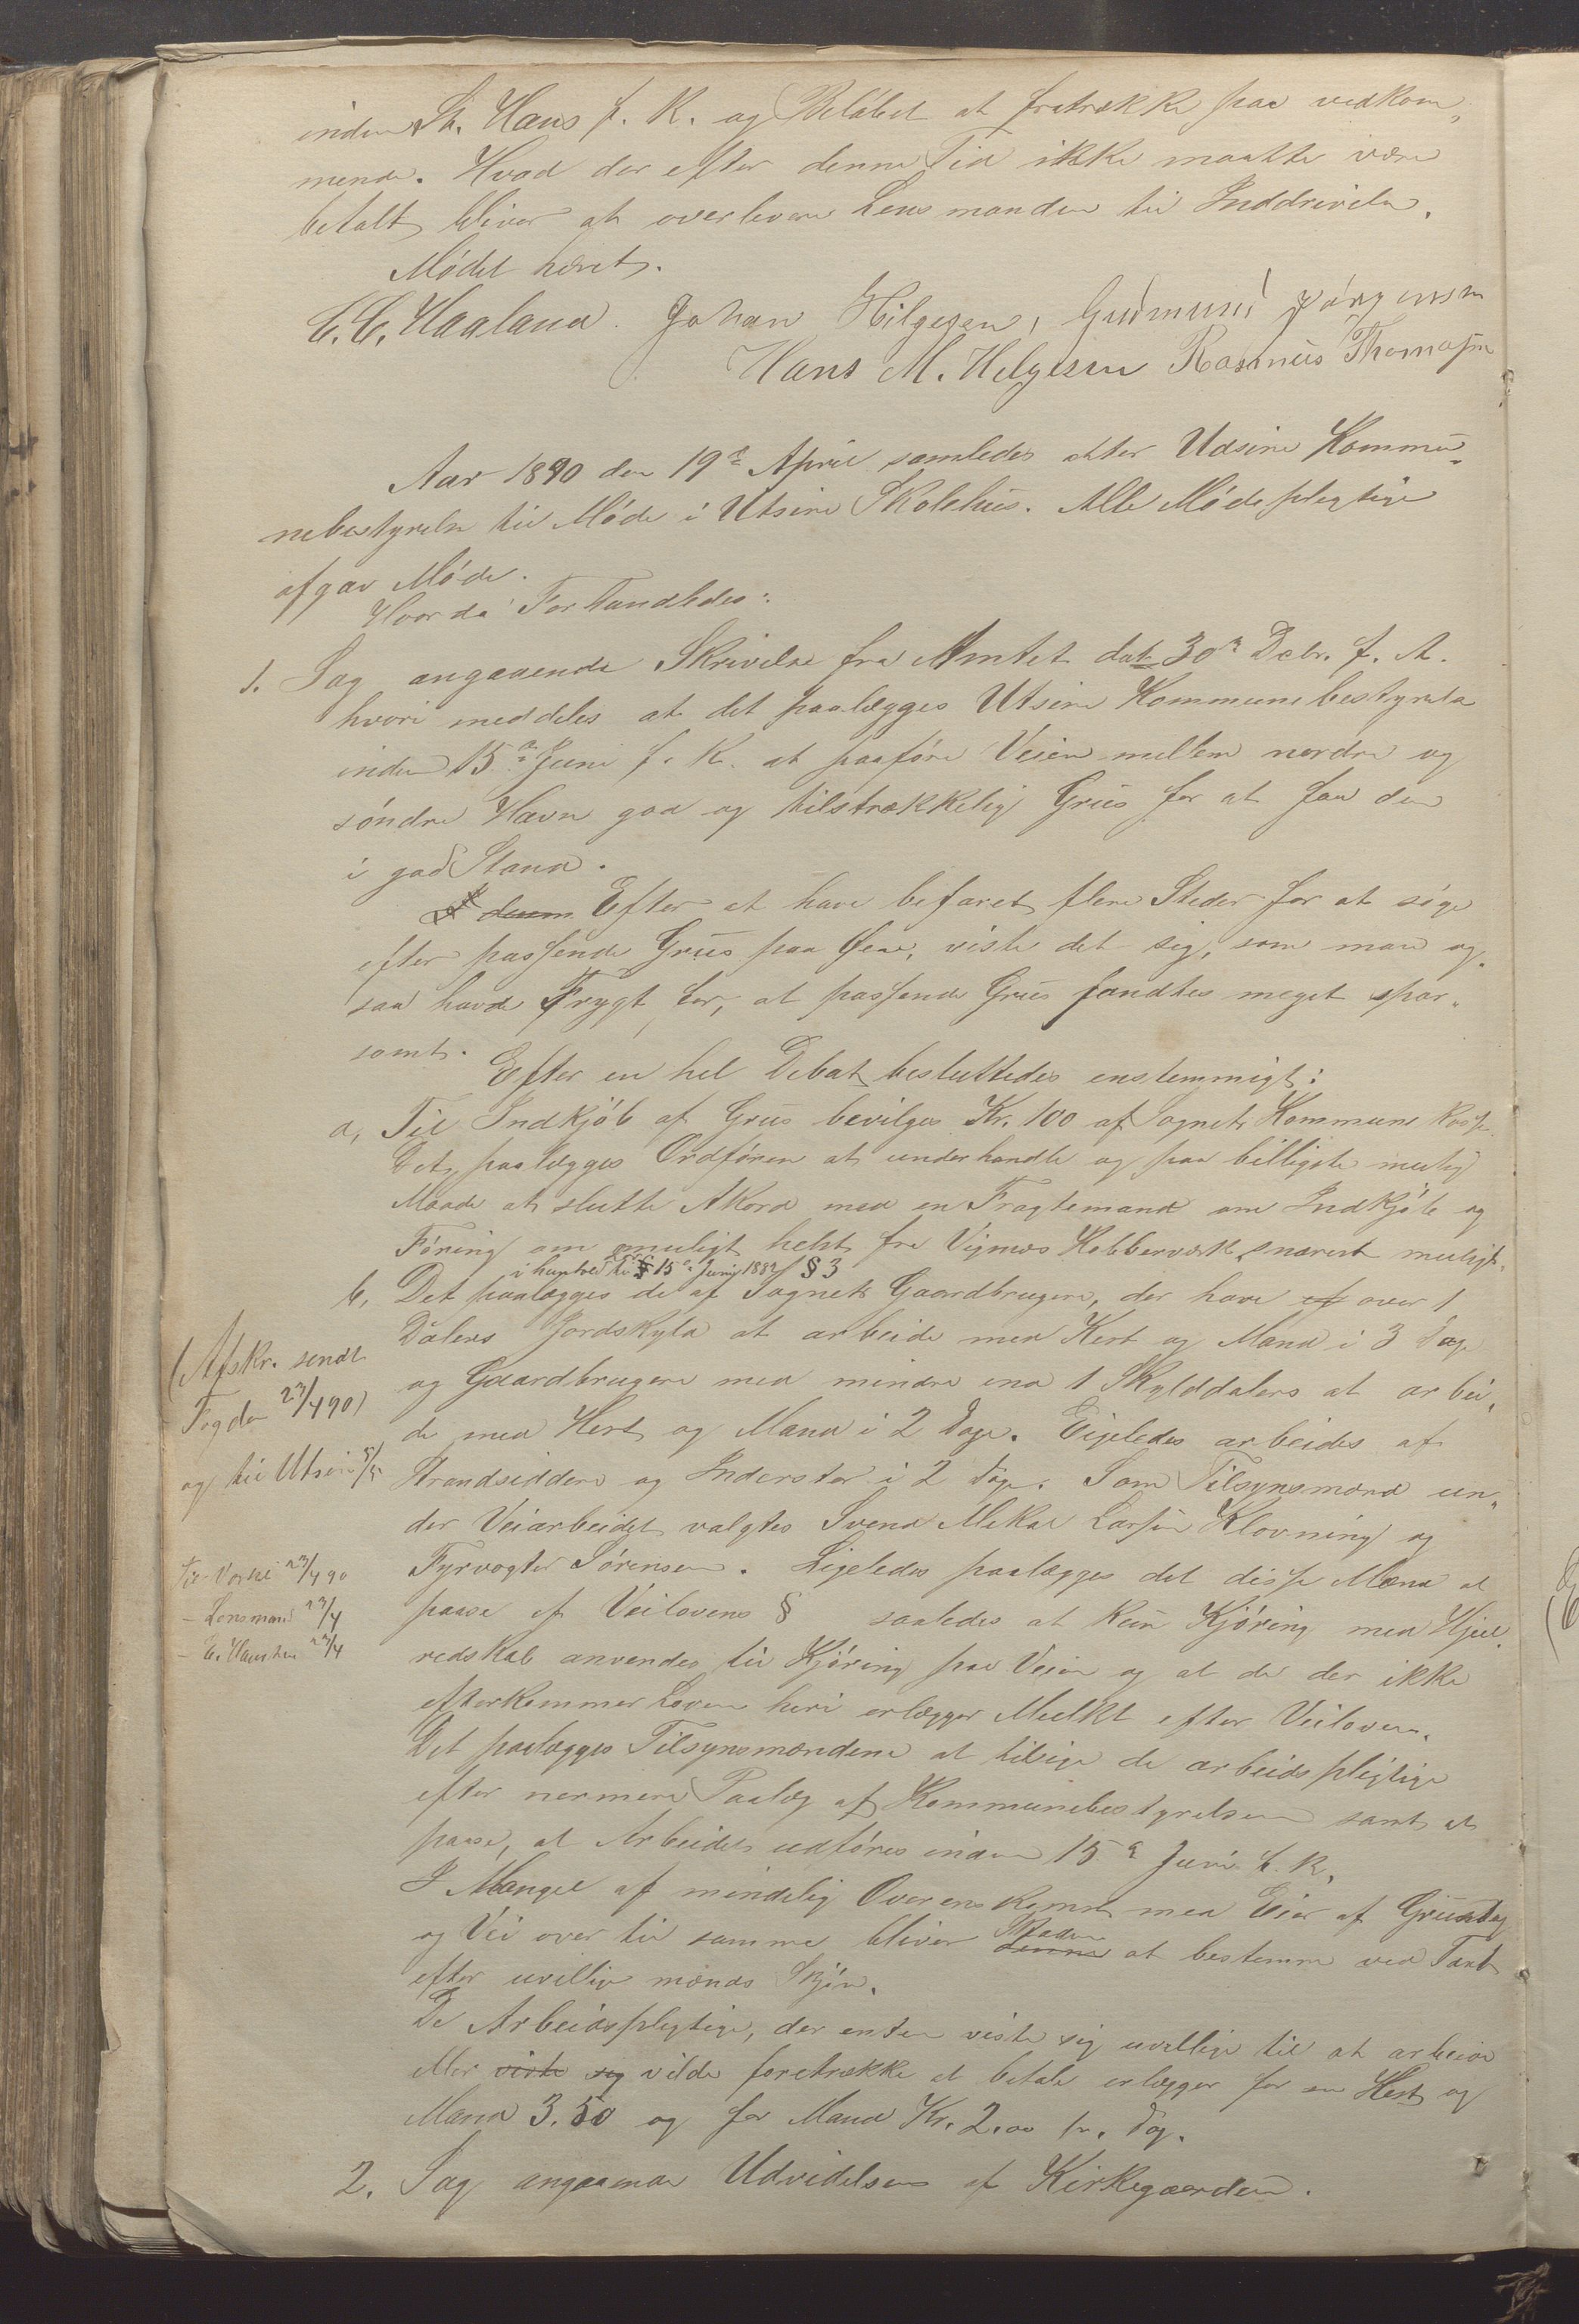 inden St. Hans f. K. og Beløbet at fratrække paa vedkom„
mende. Hvad der efter denne Tid ikke maatte være
betalt bliver at overlevere Lensmanden til Inddrivelse.
Mødet hævet.
C. C. Haaland. Johan Hilgesen, Gudmund Jörgensen
Hans M. Helgesen Rasmus Thomasen
Aar 1890 den 19de April samledes atter Udsire Kommu„
nebestyrelse til Møde i Utsire Skolehus. Alle Mødepligtige
afgav Møde.
Hvorda Forhandledes:
1. Sag angaaende Skrivelse fra Amtet dat. 30te Decbr. f. A.
hvori meddeles at det paalægges Utsire Kommunebestyrelse
inden 15de Juni f. K. at paaføre Veien mellem nordre og
søndre Havn god og tilstrækkelig Grus for at faa den
i god Stand.
Efter at have befaret flere Steder for at søge
efter passende Grus paa Øen, viste det sig, som man og„
saa havde Frygt for, at passende Grus fandtes meget spar„
somt.
Efter en hel Debat besluttedes enstemmigt:
a, Til Indkjøb af Grus bevilges Kr. 100 af Sognets Kommunekasse.
Det paalægges Ordføreren at underhandle og paa billigste mulig
Maade at slutte Akord med en Fragtemand om Indkjøb og
Føring om muligt helst fra Vignæs Kobberværk snarest muligt.
i henhold til Lov 15de Juni 1882 § 3
b, Det paalægges de af Sognets Gaardbrugere, der have af over 1
Dalers Jordskyld at arbeide med Hest og Mand i 3 Dage
og Gaardbrugere med mindre end 1 Skylddalers at arbei„
de med Hest og Mand i 2 Dage. Ligeledes arbeides af
Strandsiddere og Inderster i 2 Dage. Som Tilsynsmænd un„
der Veiarbeidet valgtes Svend Mikal Larsen Klovning og
Fyrvogter Sørensen. Ligeledes paalægges det disse Mænd at
paase af Veilovens § saaledes at kun Kjøring med Hjul„
redskab anvendes til Kjøring paa Veien og at de der ikke
efterkommer Loven heri erlægger Mulkt efter Veiloven.
Det paalægges Tilsynsmændene at tilsige de arbeidspligtige
efter nærmere Paalæg af Kommunebestyrelsen samt at
paase, at Arbeidet udføres inden 15de Juni f. K.
I Mangel af mindelig Overenskomst med Eier af Grustag
og Vei over til samme bliver denne Skaden at bestemme ved Taxt
efter uvillige mænds Skjøn.
De Arbeidspligtige, der enten viste sig uvillige til at arbeide
eller viste sig vilde foretrække at betale erlægger for en Hest og
Mand 3.50 og for Mand Kr. 2.00 pr. Dag.
2. Sag angaaende Udvidelsen af Kirkegaarden.
(Afskr. sendt
Fogden 23/4 90)
og til Utsire 5/5
Til Vorhei 23/4 90
- Lensmand 23/4
- C. Hansten 23/4